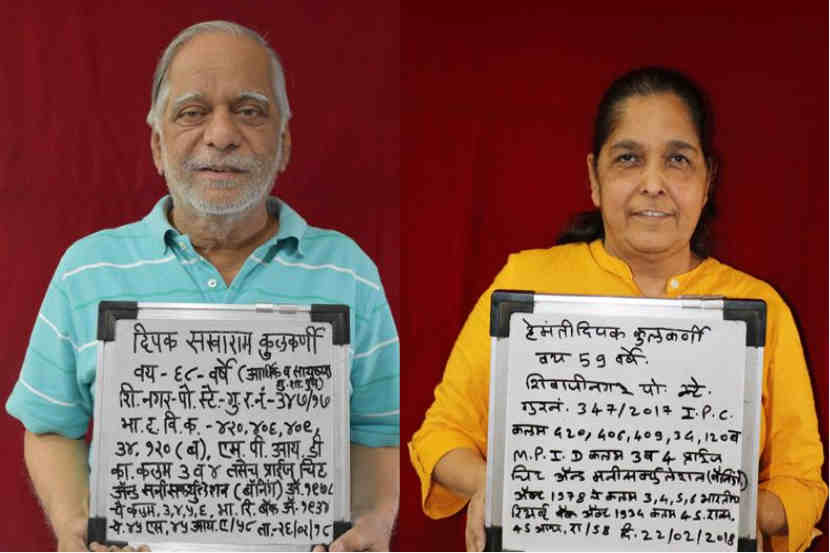 दिपक सखाराम कुलकर्णी
वय - ६८ - वर्षे (आर्थिक व सायबर
गु. शा. पुणे)
शि. नगर - पो. स्टे. - गु. र. नं - ३४७/१७
भा. द. वि. क. - ४२०, ४०६, ४०९,
३४, १२० (ब), एम. पी. आय. डी
का. कलम ३ व ४ तसेच प्राईज चिट
अँड मनीसर्क्युलेशन (बॅनिंग) अॅ. १९७८
चे कलम, ३, ४, ५, ६, भा. रि. बँक अॅ. १९३४
चे. ४५ एस, ४५ आय. ए/५८ ता - २६/०२/१८
हेमंती दिपक कुलकर्णी
वय 59 वर्षे.
शिवाजीनगर पो. स्टे.
गुरनं. 347/2017 I.P.C.
कलम 420, 406, 409, 34, 120 ब
M.P.I.D कलम 3 व 4 प्राईज
चिट अँड मनीसर्क्युलेशन (बॅनिंग)
अॅक्ट 1978 चे कलम 3, 4, 5, 6 भारतीय
रिझर्व्ह बँक अॅक्ट 1934 कलम 45. एस.
45 आय. ए/58 दि. 22/02/2018